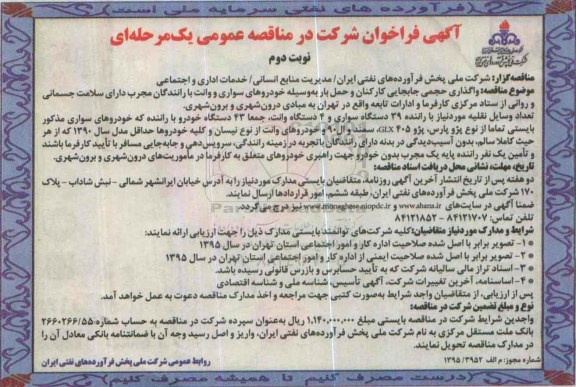 فرآورده های نفتی سرمایه ملی است
آگهی فراخوان شرکت در مناقصه عمومی یک‌مرحله‌ای
نوبت دوم
مناقصه‌گزار: شرکت ملی پخش فرآورده‌های نفتی ایران/ مدیریت منابع انسانی/ خدمات اداری و اجتماعی
موضوع مناقصه: واگذاری حجمی جابجایی کارکنان و حمل بار به‌وسیله خودروهای سواری و وانت با رانندگان مجرب دارای سلامت جسمانی
و روانی از ستاد مرکزی کارفرما و ادارات تابعه واقع در تهران به مبادی درون‌شهری و برون‌شهری.
تعداد وسایل نقلیه موردنیاز با راننده ۳۹ دستگاه سواری و ۴ دستگاه وانت، جمعا ۴۳ دستگاه خودرو با راننده که خودروهای سواری مذکور
بایستی تماما از نوع پژو پارس، پژو ۴۰۵ GLX، سمند و ال ۹۰ و خودروهای وانت از نوع نیسان و کلیه خودروها حداقل مدل سال ۱۳۹۰ که از هر
حیث کاملا سالم، بدون آسیب‌دیدگی در بدنه دارای رانندگان باتجربه در زمینه رانندگی، سرویس‌دهی و جابه‌جایی مسافر با تأیید کارفرما باشند
و تأمین یک نفر راننده پایه یک مجرب بدون خودرو جهت راهبری خودروهای متعلق به کارفرما در مأموریت‌های درون‌شهری و برون‌شهری.
تاریخ، مهلت، نشانی محل دریافت اسناد مناقصه:
دو هفته پس از تاریخ انتشار آخرین آگهی روزنامه، متقاضیان بایستی مدارک موردنیاز را به آدرس خیابان ایرانشهر شمالی - نبش شاداب - پلاک
۱۷۰ شرکت ملی پخش فرآورده‌های نفتی ایران، طبقه ششم، امور قراردادها ارسال نمایند.
ضمنا آگهی در سایت‌های www.shana.ir و www.monaghese.niopdc.ir نیز درج می‌گردد.
تلفن تماس: ۸۴۱۲۱۷۰۷ - ۸۴۱۲۱۸۵۲
شرایط و مدارک موردنیاز متقاضیان: کلیه شرکت‌های توانمند بایستی مدارک ذیل را جهت ارزیابی ارائه نمایند:
۱- تصویر برابر با اصل شده صلاحیت اداره کار و امور اجتماعی استان تهران در سال ۱۳۹۵
۲- تصویر برابر با اصل شده صلاحیت ایمنی از اداره کار و امور اجتماعی استان تهران در سال ۱۳۹۵
۳- اسناد تراز مالی سالیانه شرکت که به تأیید حسابرس و بازرس قانونی رسیده باشد.
۴- اساسنامه، آخرین تغییرات شرکت، آگهی تأسیس، شناسه ملی و شناسه اقتصادی
پس از ارزیابی، از متقاضیان واجد شرایط به‌صورت کتبی جهت مراجعه و اخذ مدارک مناقصه دعوت به عمل خواهد آمد.
نوع و مبلغ تضمین شرکت در مناقصه:
واجدین شرایط شرکت در مناقصه بایستی مبلغ ۱,۱۴۰,۰۰۰,۰۰۰ ریال به‌عنوان سپرده شرکت در مناقصه به حساب شماره ۲۶۶۰۲۶۶/۵۵
بانک ملت مستقل مرکزی به نام شرکت ملی پخش فرآورده‌های نفتی ایران، واریز و اصل رسید وجه آن یا ضمانتنامه بانکی معادل آن را
در مدارک مناقصه تحویل نمایند.
شماره مجوز: م الف ۳۹۵۲/ ۱۳۹۵
روابط عمومی شرکت ملی پخش فرآورده‌های نفتی ایران
درست مصرف کنیم تا همیشه مصرف کنیم